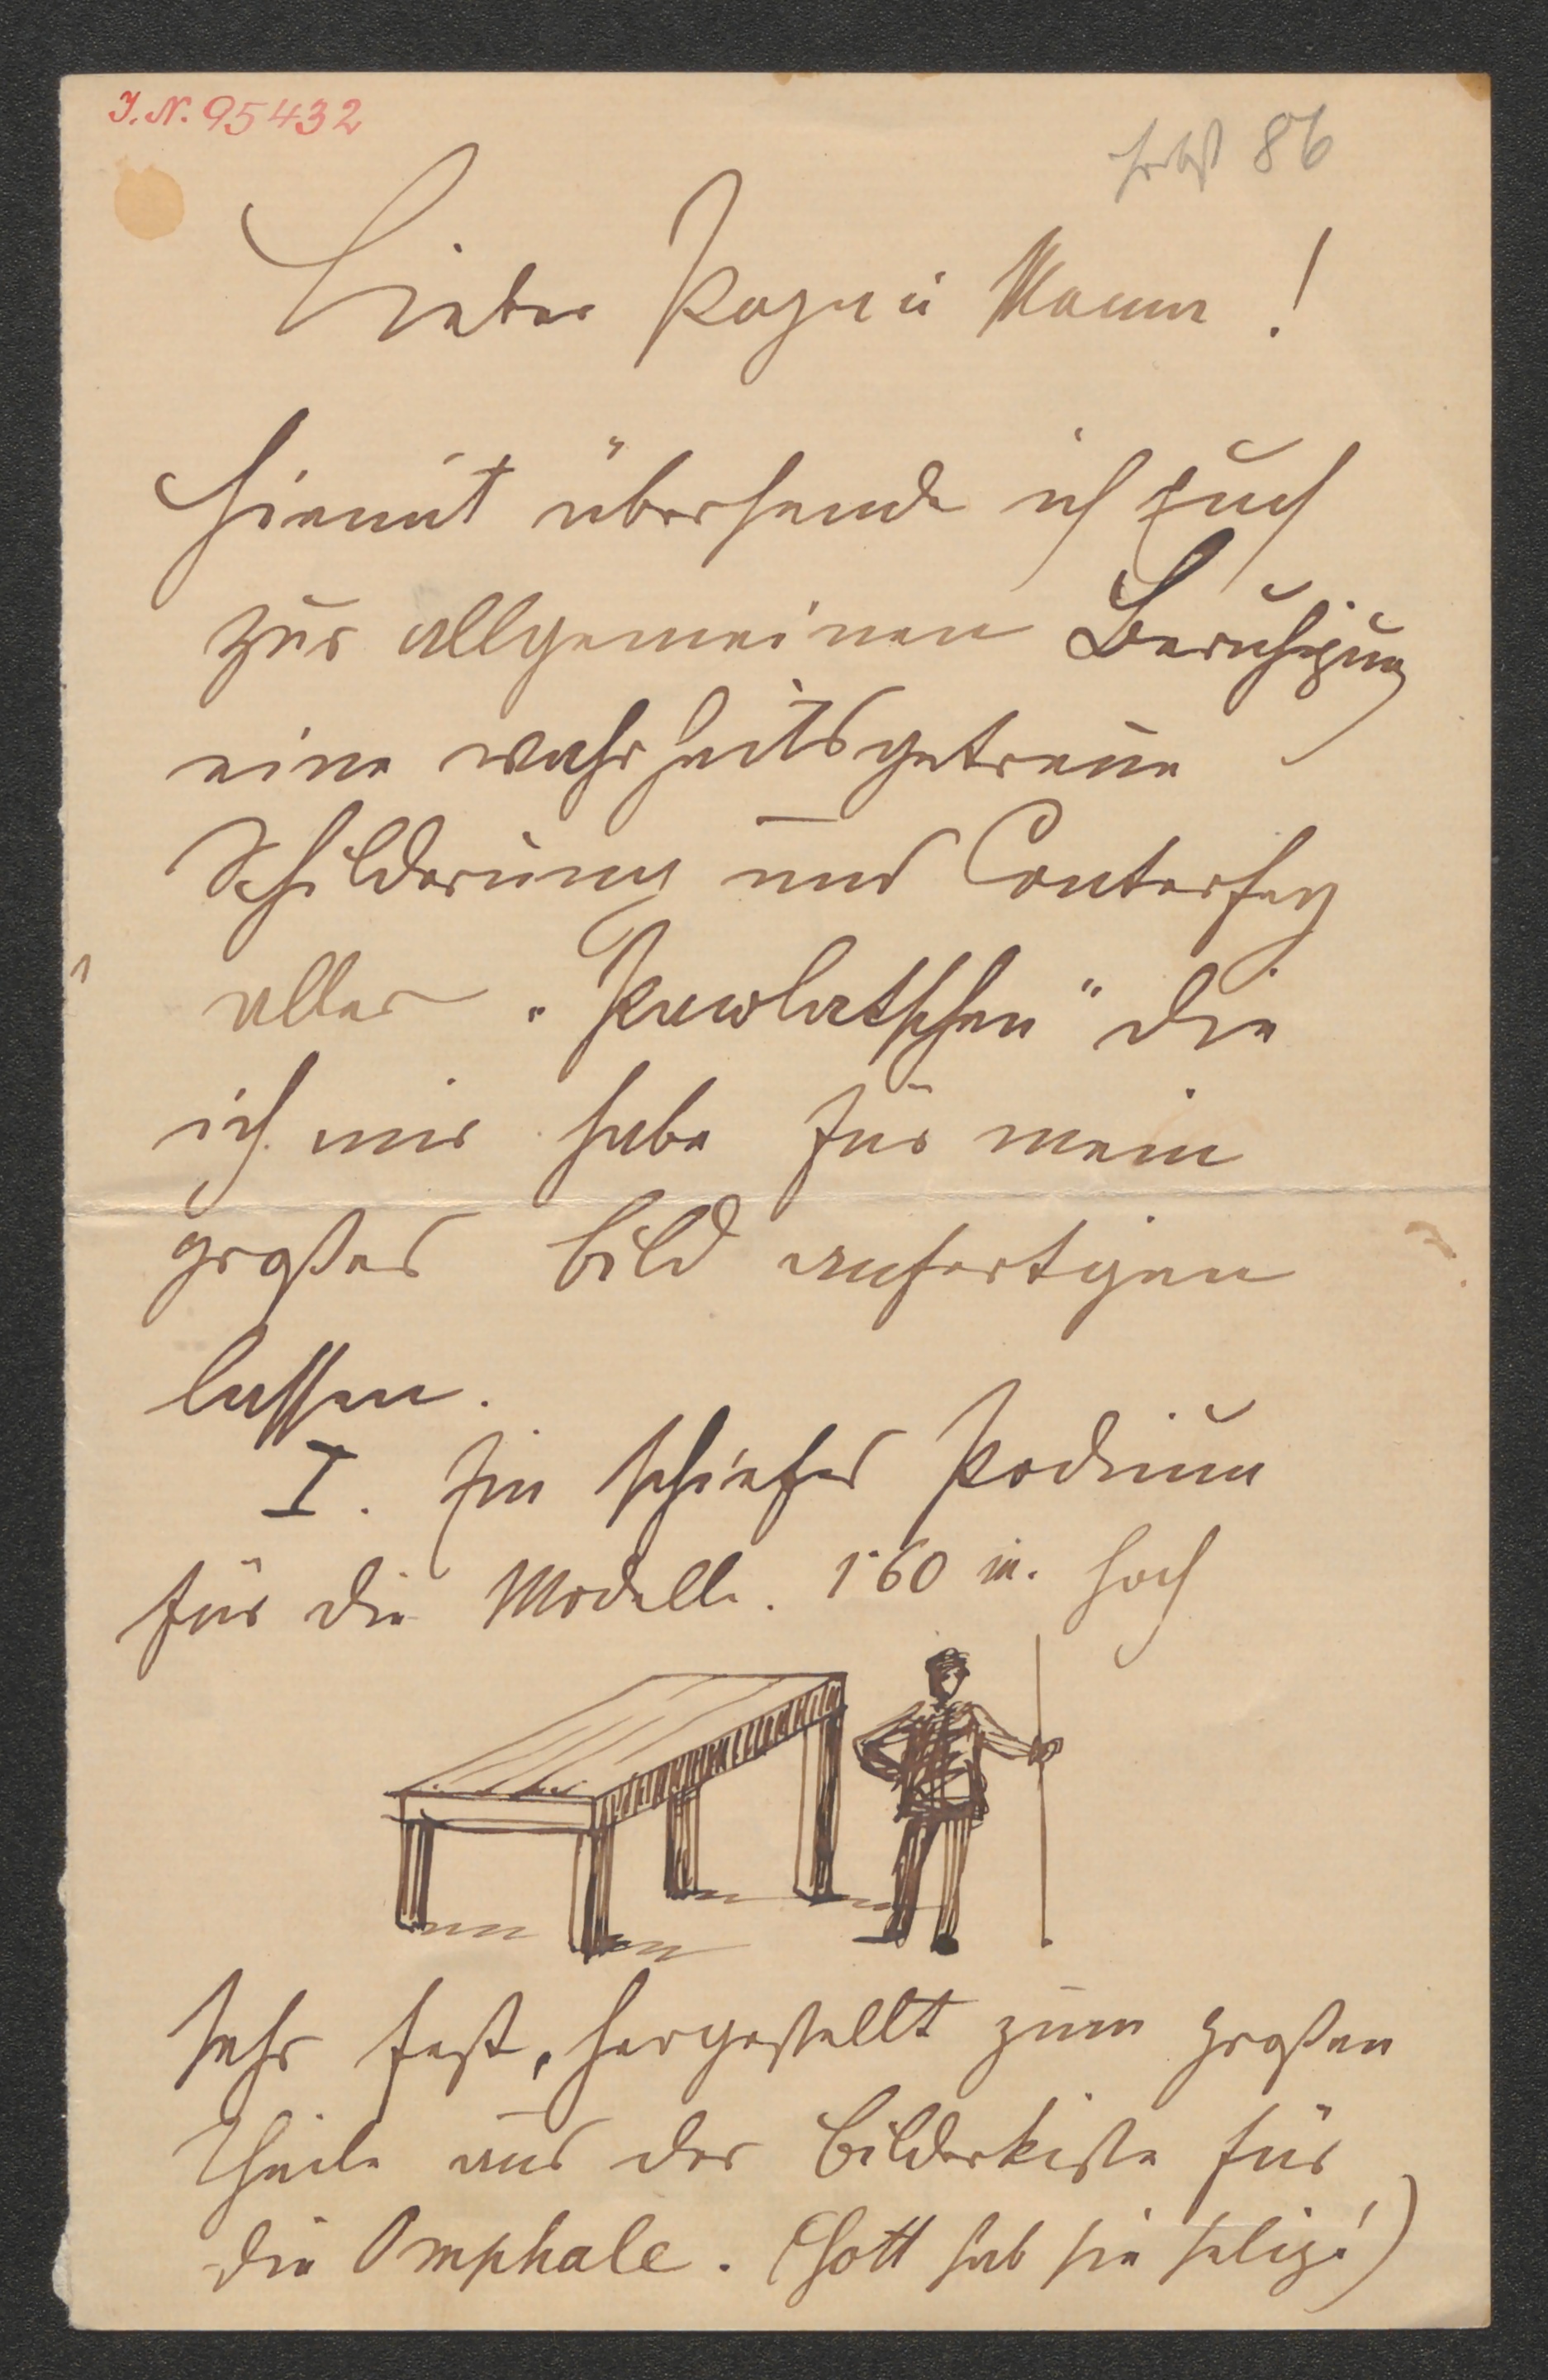 I.N. 95432
Herbst 86
Lieber Papa u Mama!
Hiemit übersende ich Euch
zur allgemeinen Beruhigung
eine wahrheitsgetreue
Schilderung und Conterfey
aller „Pawlatschen“ die
ich mir habe für mein
großes Bild anfertigen
lassen.
I. Ein schiefes Podium
für die Modelle. 1·60 m. hoch
sehr fest, hergestellt zum großen
Theile aus der Bilderkiste für
die Omphale. (Gott hab sie selig!)